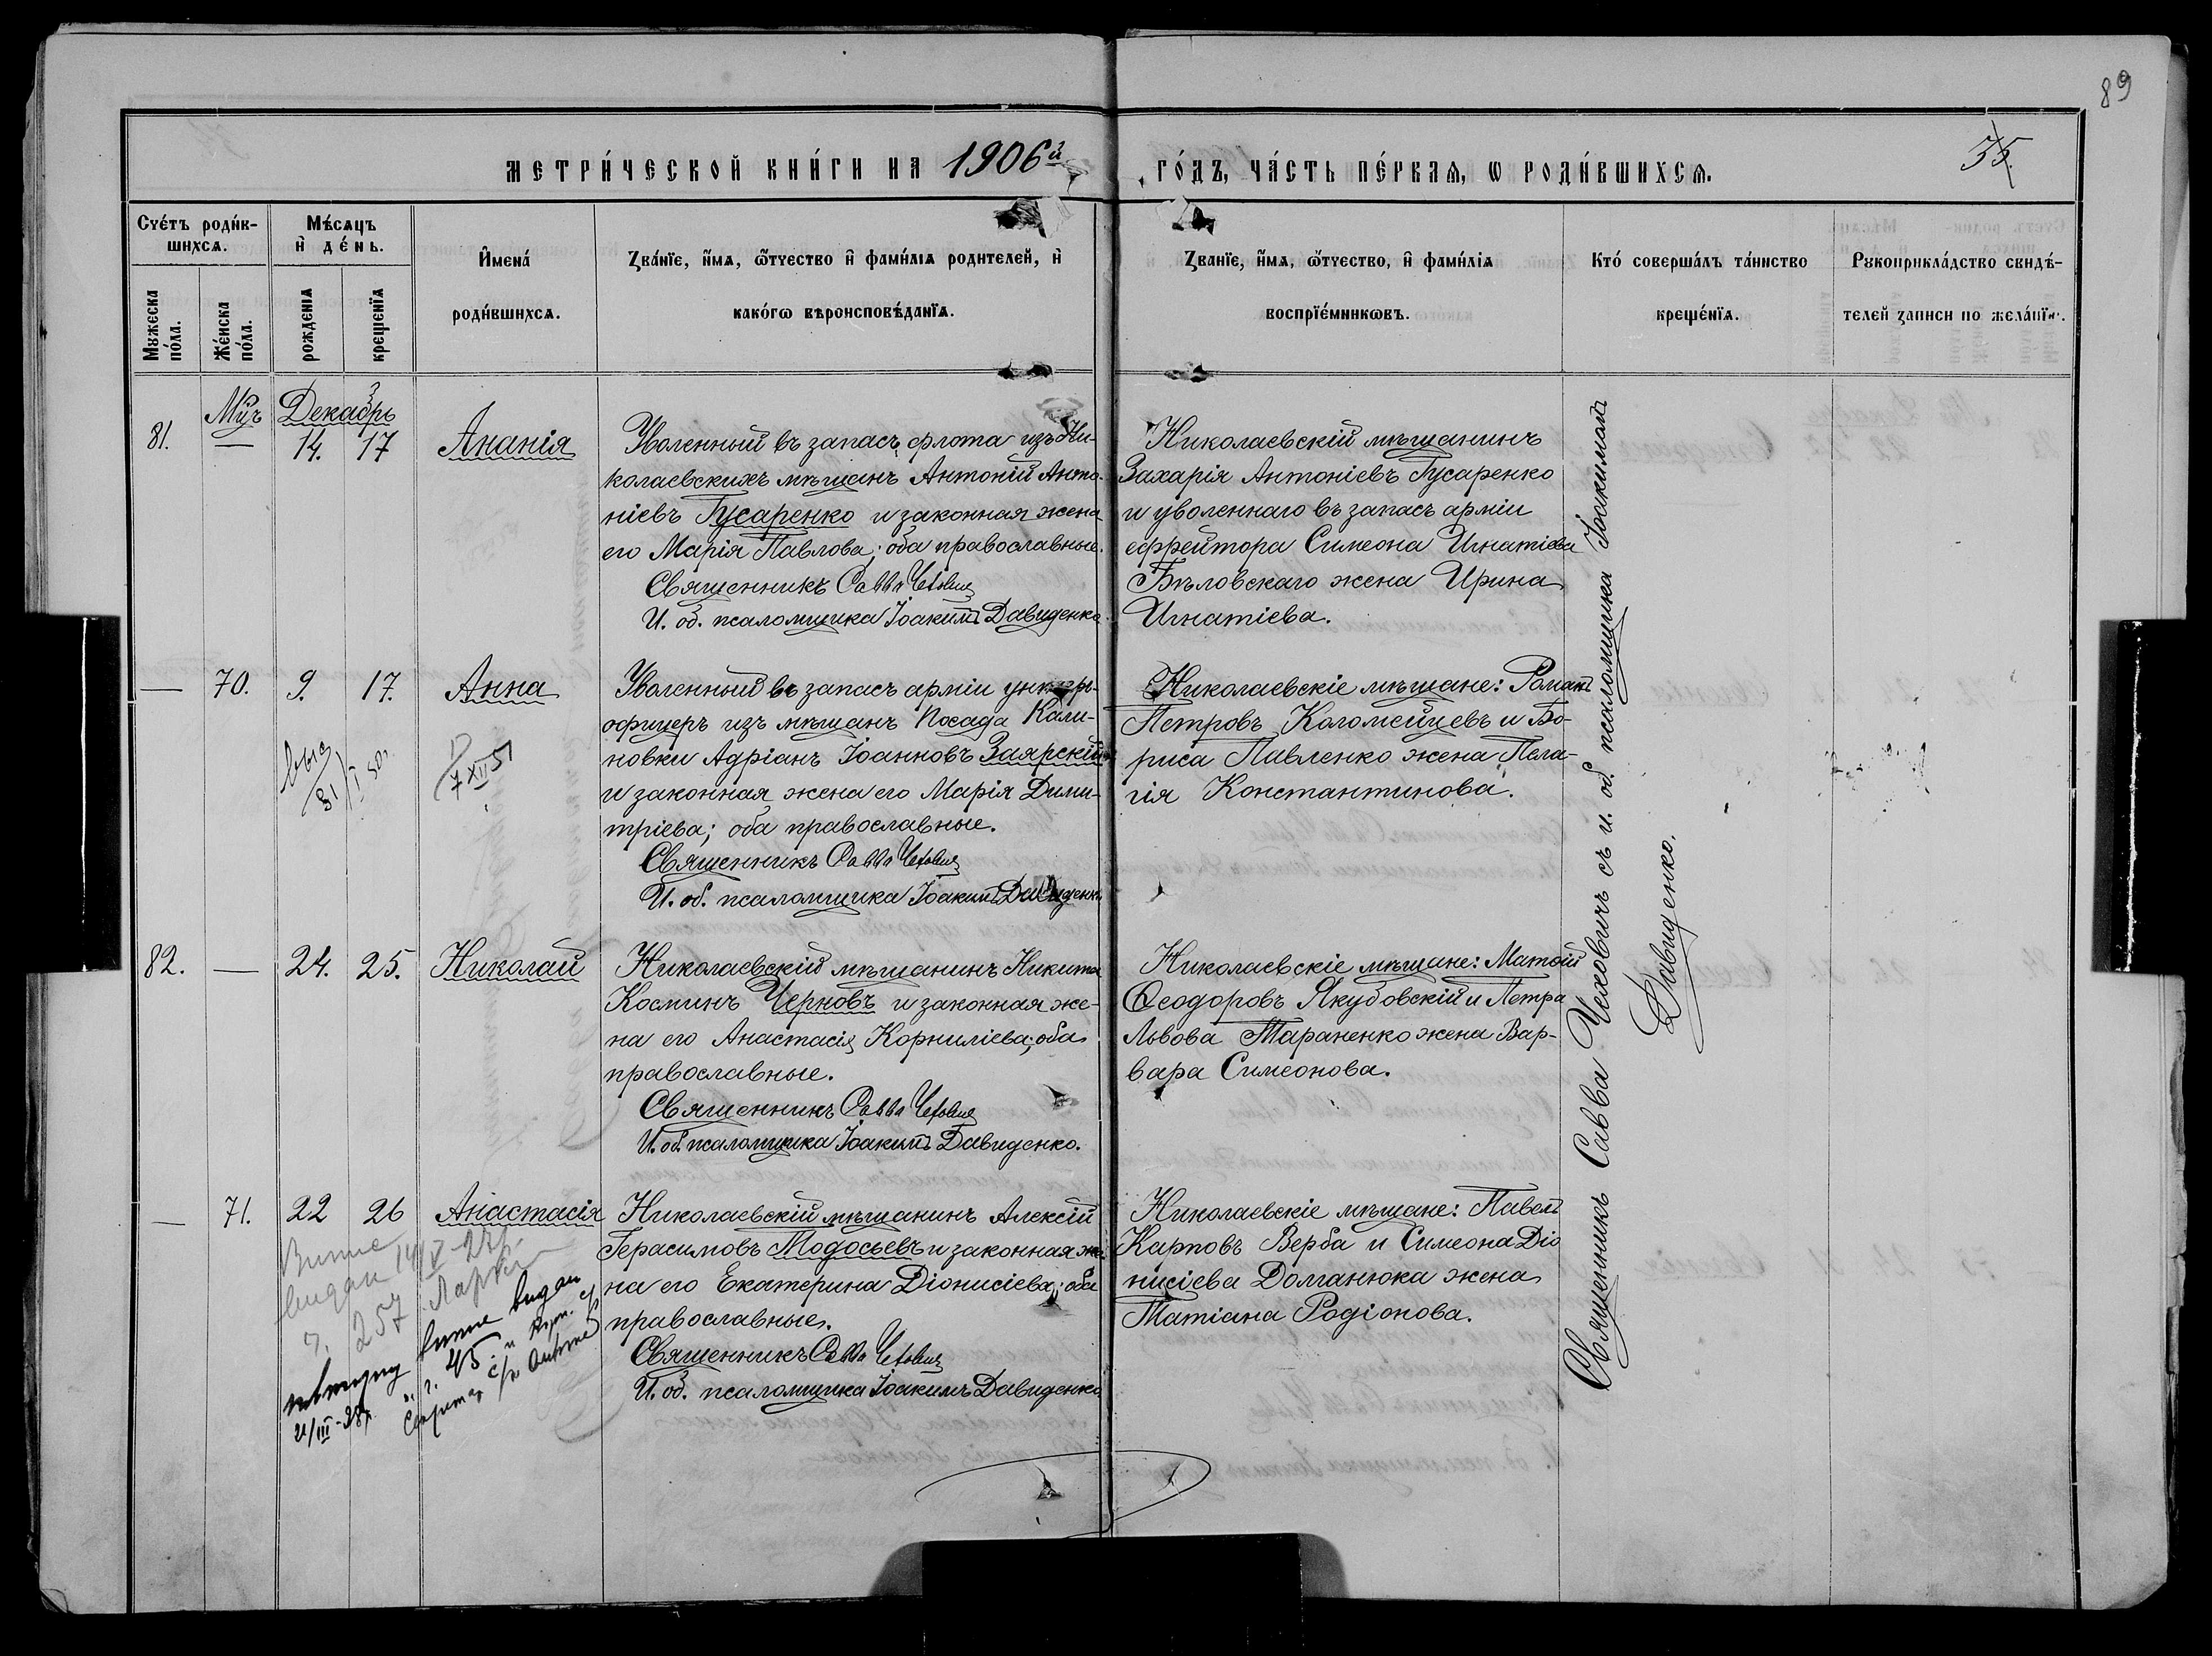 89
МЕТРИ́ЧЕСКОЙ КНИ́ГИ НА 1906й ГО́ДЪ, ЧА́СТЬ ПЕ́РВАЯ, Ѡ РОДИ́ВШИХСЯ.
35.
Счетъ роди́вшихся.
Мꙋ́жеска по́ла.
Же́нска по́ла.
Мѣ́сяцъ и де́нь.
рожденїя
крещенїя
Имена́ роди́вшихся.
Зва́нїе, и́мя, ѻ́тчество и фами́лїя родителей, и како́гѡ вѣроисповѣ́данїя.
Званїе, и́мя, ѻ́тчество, и фами́лїя воспрїе́мникѡвъ.
Кто́ соверша́лъ та́инство креще́нїя.
Рꙋкоприкла́дство свидѣ́телей записи по жела́нїю.
Декабрь
81.
—
14.
17
Ананія
Уволенный въ запасъ флота изъ Ни-
колаевскихъ мѣщанъ Антоній Анто-
ніевъ Гусаренко и законная жена
его Марія Павлова; оба православные.
Священникъ Савва Чехович
И. об. псаломщика Іоакимъ Давиденко.
Николаевскій мѣщанинъ
Захарія Антоніевъ Гусаренко
и уволеннаго въ запасъ арміи
ефрейтора Симеона Игнатіева
Бѣловскаго жена Ирина
Игнатіева.
—
70.
9.
17.
Анна
7 XII 51
31/I 50
Уволенный въ запасъ арміи унтеръ-
офицеръ изъ мѣщанъ Посада Кали-
новки Адріанъ Іоанновъ Заярскій
и законная жена его Марія Дими-
тріева; оба православные.
Священникъ Савва Чехович
И. об. псаломщика Іоакимъ Давиденко
Николаевскіе мѣщане: Романъ
Петровъ Коломейцевъ и Бо-
риса Павленко жена Пела-
гія Константинова.
82.
—
24.
25.
Николай
Николаевскій мѣщанинъ Никита
Косминъ Черновъ и законная же-
на его Анастасія Корниліева; оба
православные.
Священникъ Савва Чехович
И. об. псаломщика Іоакимъ Давиденко.
Николаевскіе мѣщане: Матѳій
Ѳеодоровъ Якубовскій и Петра
Львова Тараненко жена Вар-
вара Симеонова.
—
71.
22
26
Анастасія
Николаевскій мѣщанинъ Алексій
Герасимовъ Модосьевъ и законная же-
на его Екатерина Діонисіева; оба
православные.
Священникъ Савва Чехович
И. об. псаломщика Іоакимъ Давиденко
Николаевскіе мѣщане: Павелъ
Карповъ Верба и Симеона Діо
нисіева Долганюка жена
Татіана Родіонова.
видан 14/V-27р.
ч. 257
повторну видан
21/III-28р. ч. 45.
Священникъ Савва Чеховичъ съ и. об. псаломщика Іоакимомъ
Давиденко.